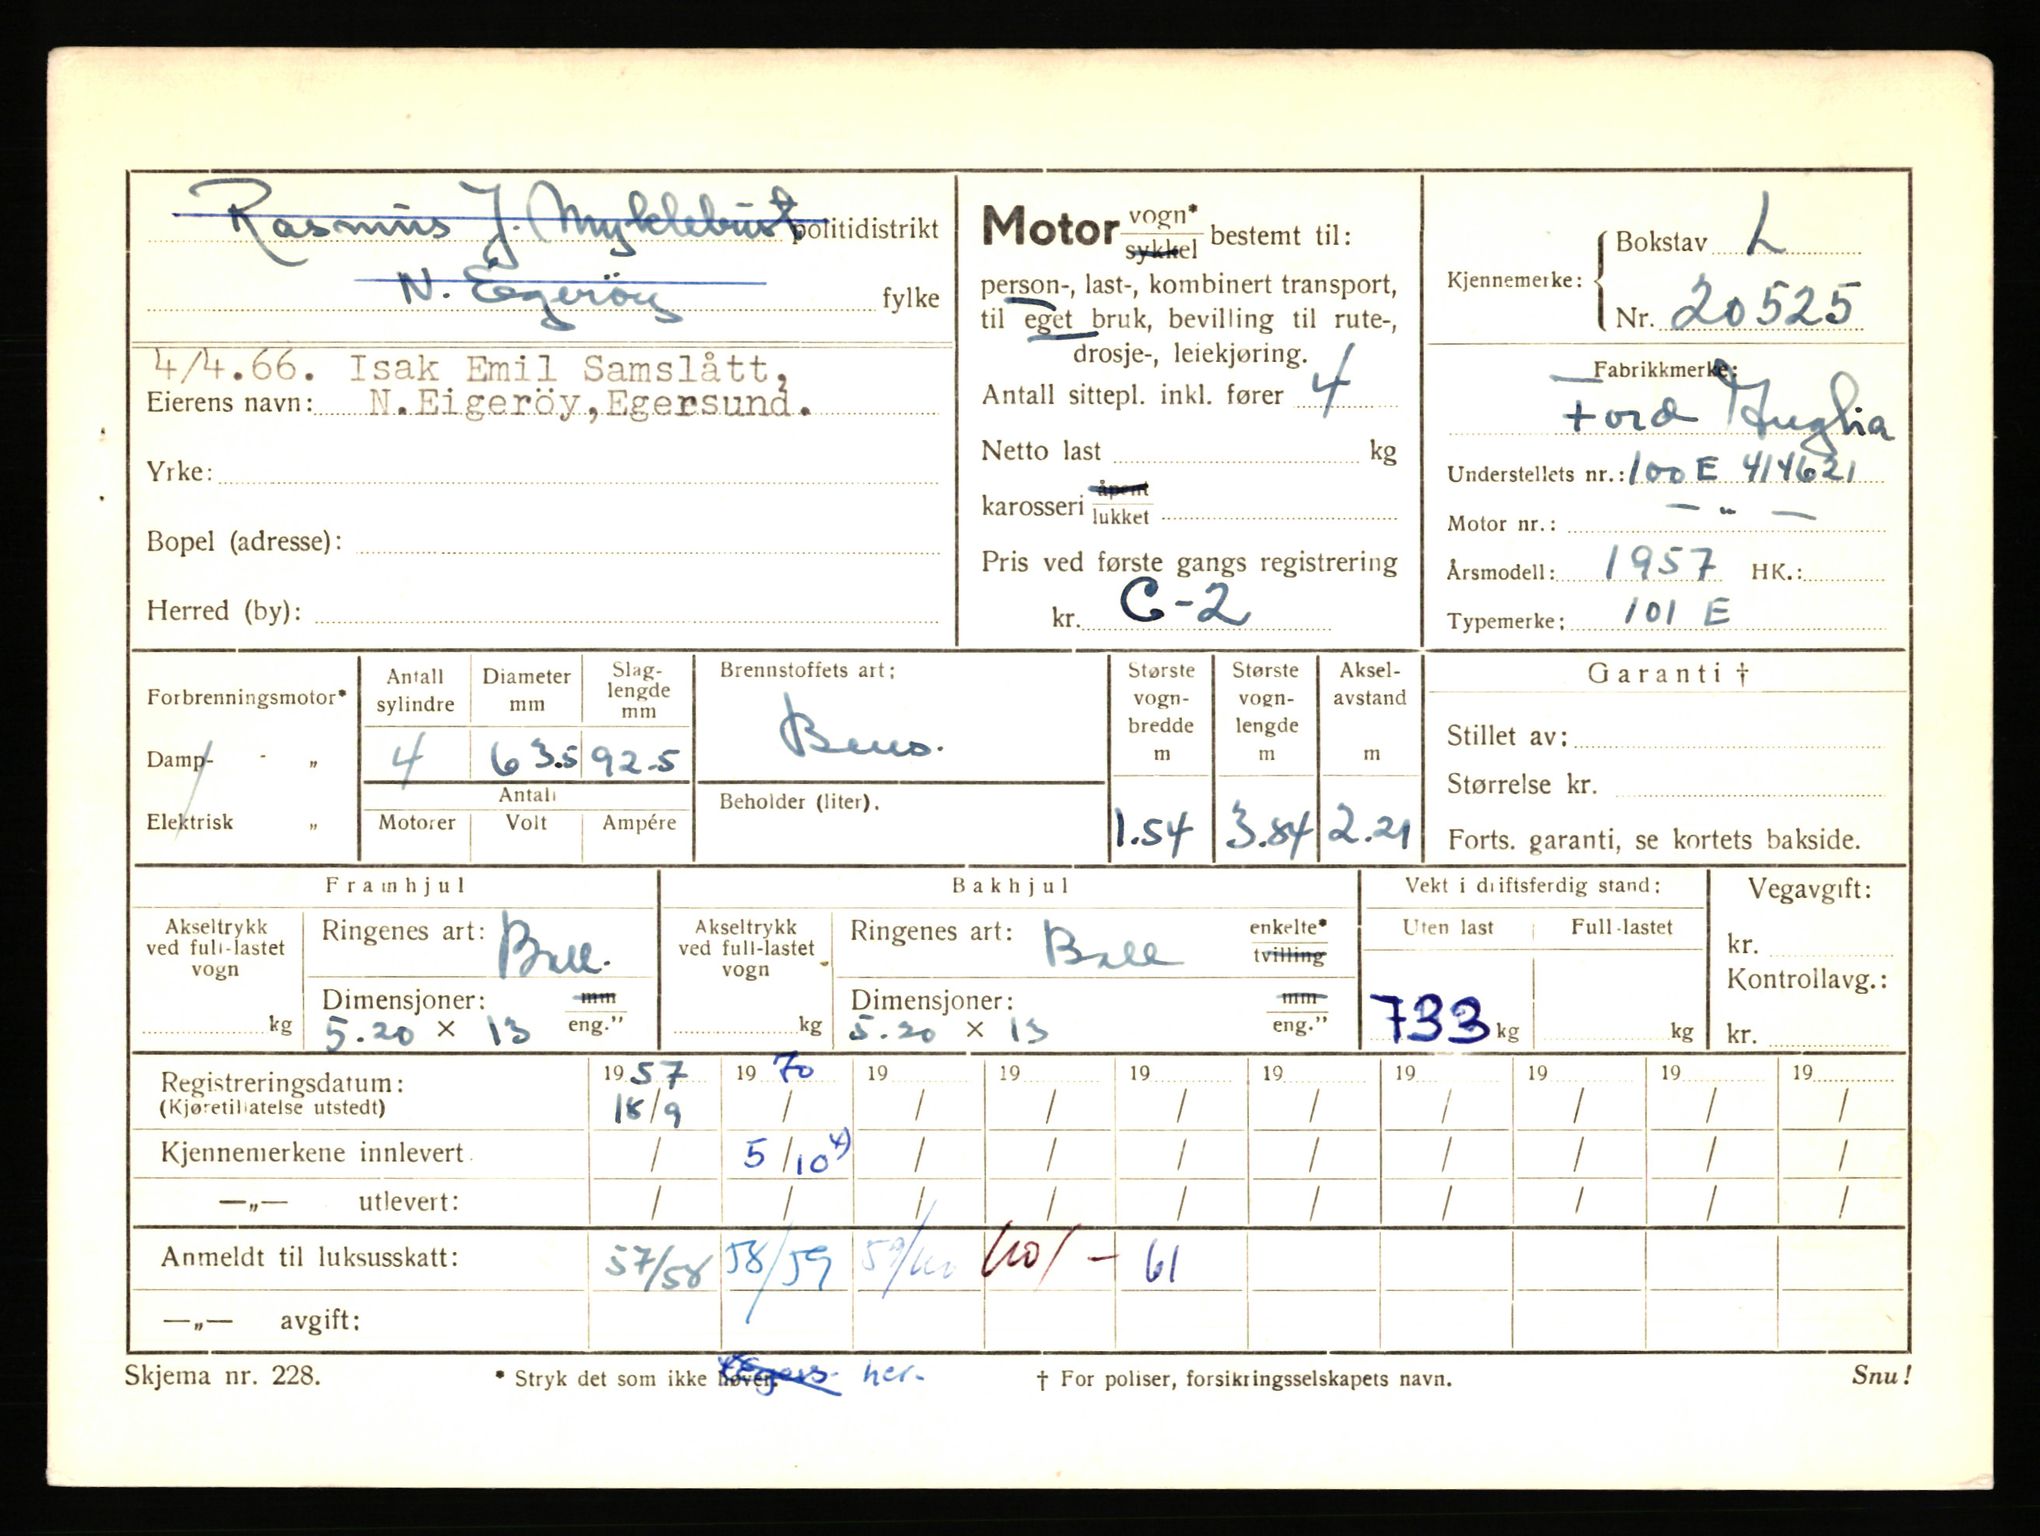 Rasmus J. Myklebust politidistrikt
N. Egeröy fylke
4/4.66. Isak Emil Samslått,
Eierens navn: N.Eigeröy,Egersund.
Yrke:
Bopel (adresse):
Herred (by):
Motor vogn* sykkel bestemt til:
person-, last-, kombinert transport,
til eget bruk, bevilling til rute-,
drosje-, leiekjøring.
Antall sittepl. inkl. fører 4
Netto last kg
karosseri åpent lukket
Pris ved første gangs registrering
kr. C-2
Kjennemerke: Bokstav L
Nr. 20525
Fabrikkmerke:
Ford Anglia
Understellets nr.: 100 E 414621
Motor nr.: — " —
Årsmodell: 1957 HK.:
Typemerke: 101 E
Forbrenningsmotor*
Damp- - „
Elektrisk „
Antall sylindre
Diameter mm
Slag-lengde mm
4 63.5 92.5
Antall
Motorer Volt Ampére
Brennstoffets art:
Bens.
Beholder (liter).
Største vogn-bredde m
Største vogn-lengde m
Aksel-avstand m
1.54 3.84 2.21
Garanti †
Stillet av:
Størrelse kr.
Forts. garanti, se kortets bakside.
Framhjul
Akseltrykk ved full-lastet vogn
kg
Ringenes art: Ball.
Dimensjoner: mm
5.20 × 13 eng.”
Bakhjul
Akseltrykk ved full-lastet vogn
kg
Ringenes art: Ball enkelte* tvilling
Dimensjoner: mm
5.20 × 13 eng.”
Vekt i driftsferdig stand:
Uten last Full-lastet
733 kg kg
Vegavgift:
kr.
Kontrollavg.:
kr.
Registreringsdatum: 19 57 19 70 19 19 19 19 19 19 19 19
(Kjøretillatelse utstedt) 18/9 / / / / / / / / /
Kjennemerkene innlevert / 5/10 4) / / / / / / / /
—„— utlevert: / / / / / / / / / /
Anmeldt til luksusskatt: 57/58 58/59 59/60 60/ - 61
—„— avgift:
Skjema nr. 228. * Stryk det som ikke høver. Egers. her. † For poliser, forsikringsselskapets navn. Snu!